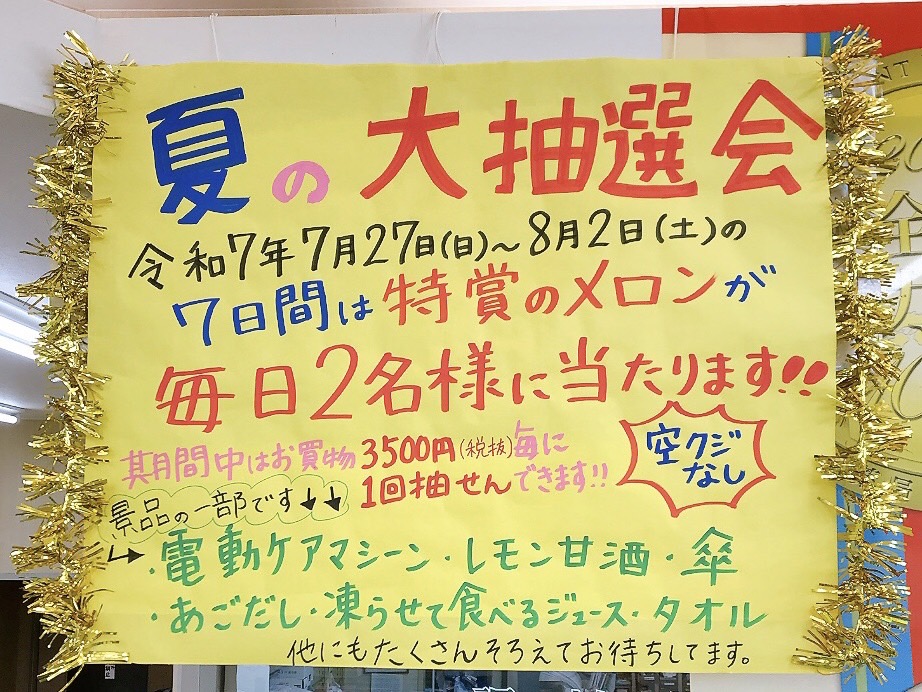 夏の大抽選会
令和7年7月27日(日)～8月2日(土)の
7日間は特賞のメロンが
毎日2名様に当たります!!
期間中はお買物3500円(税抜)毎に
1回抽せんできます!!
空クジ
なし
景品の一部です↓↓
→・電動ケアマシーン・レモン甘酒・傘
・あごだし・凍らせて食べるジュース・タオル
他にもたくさんそろえてお待ちしてます。